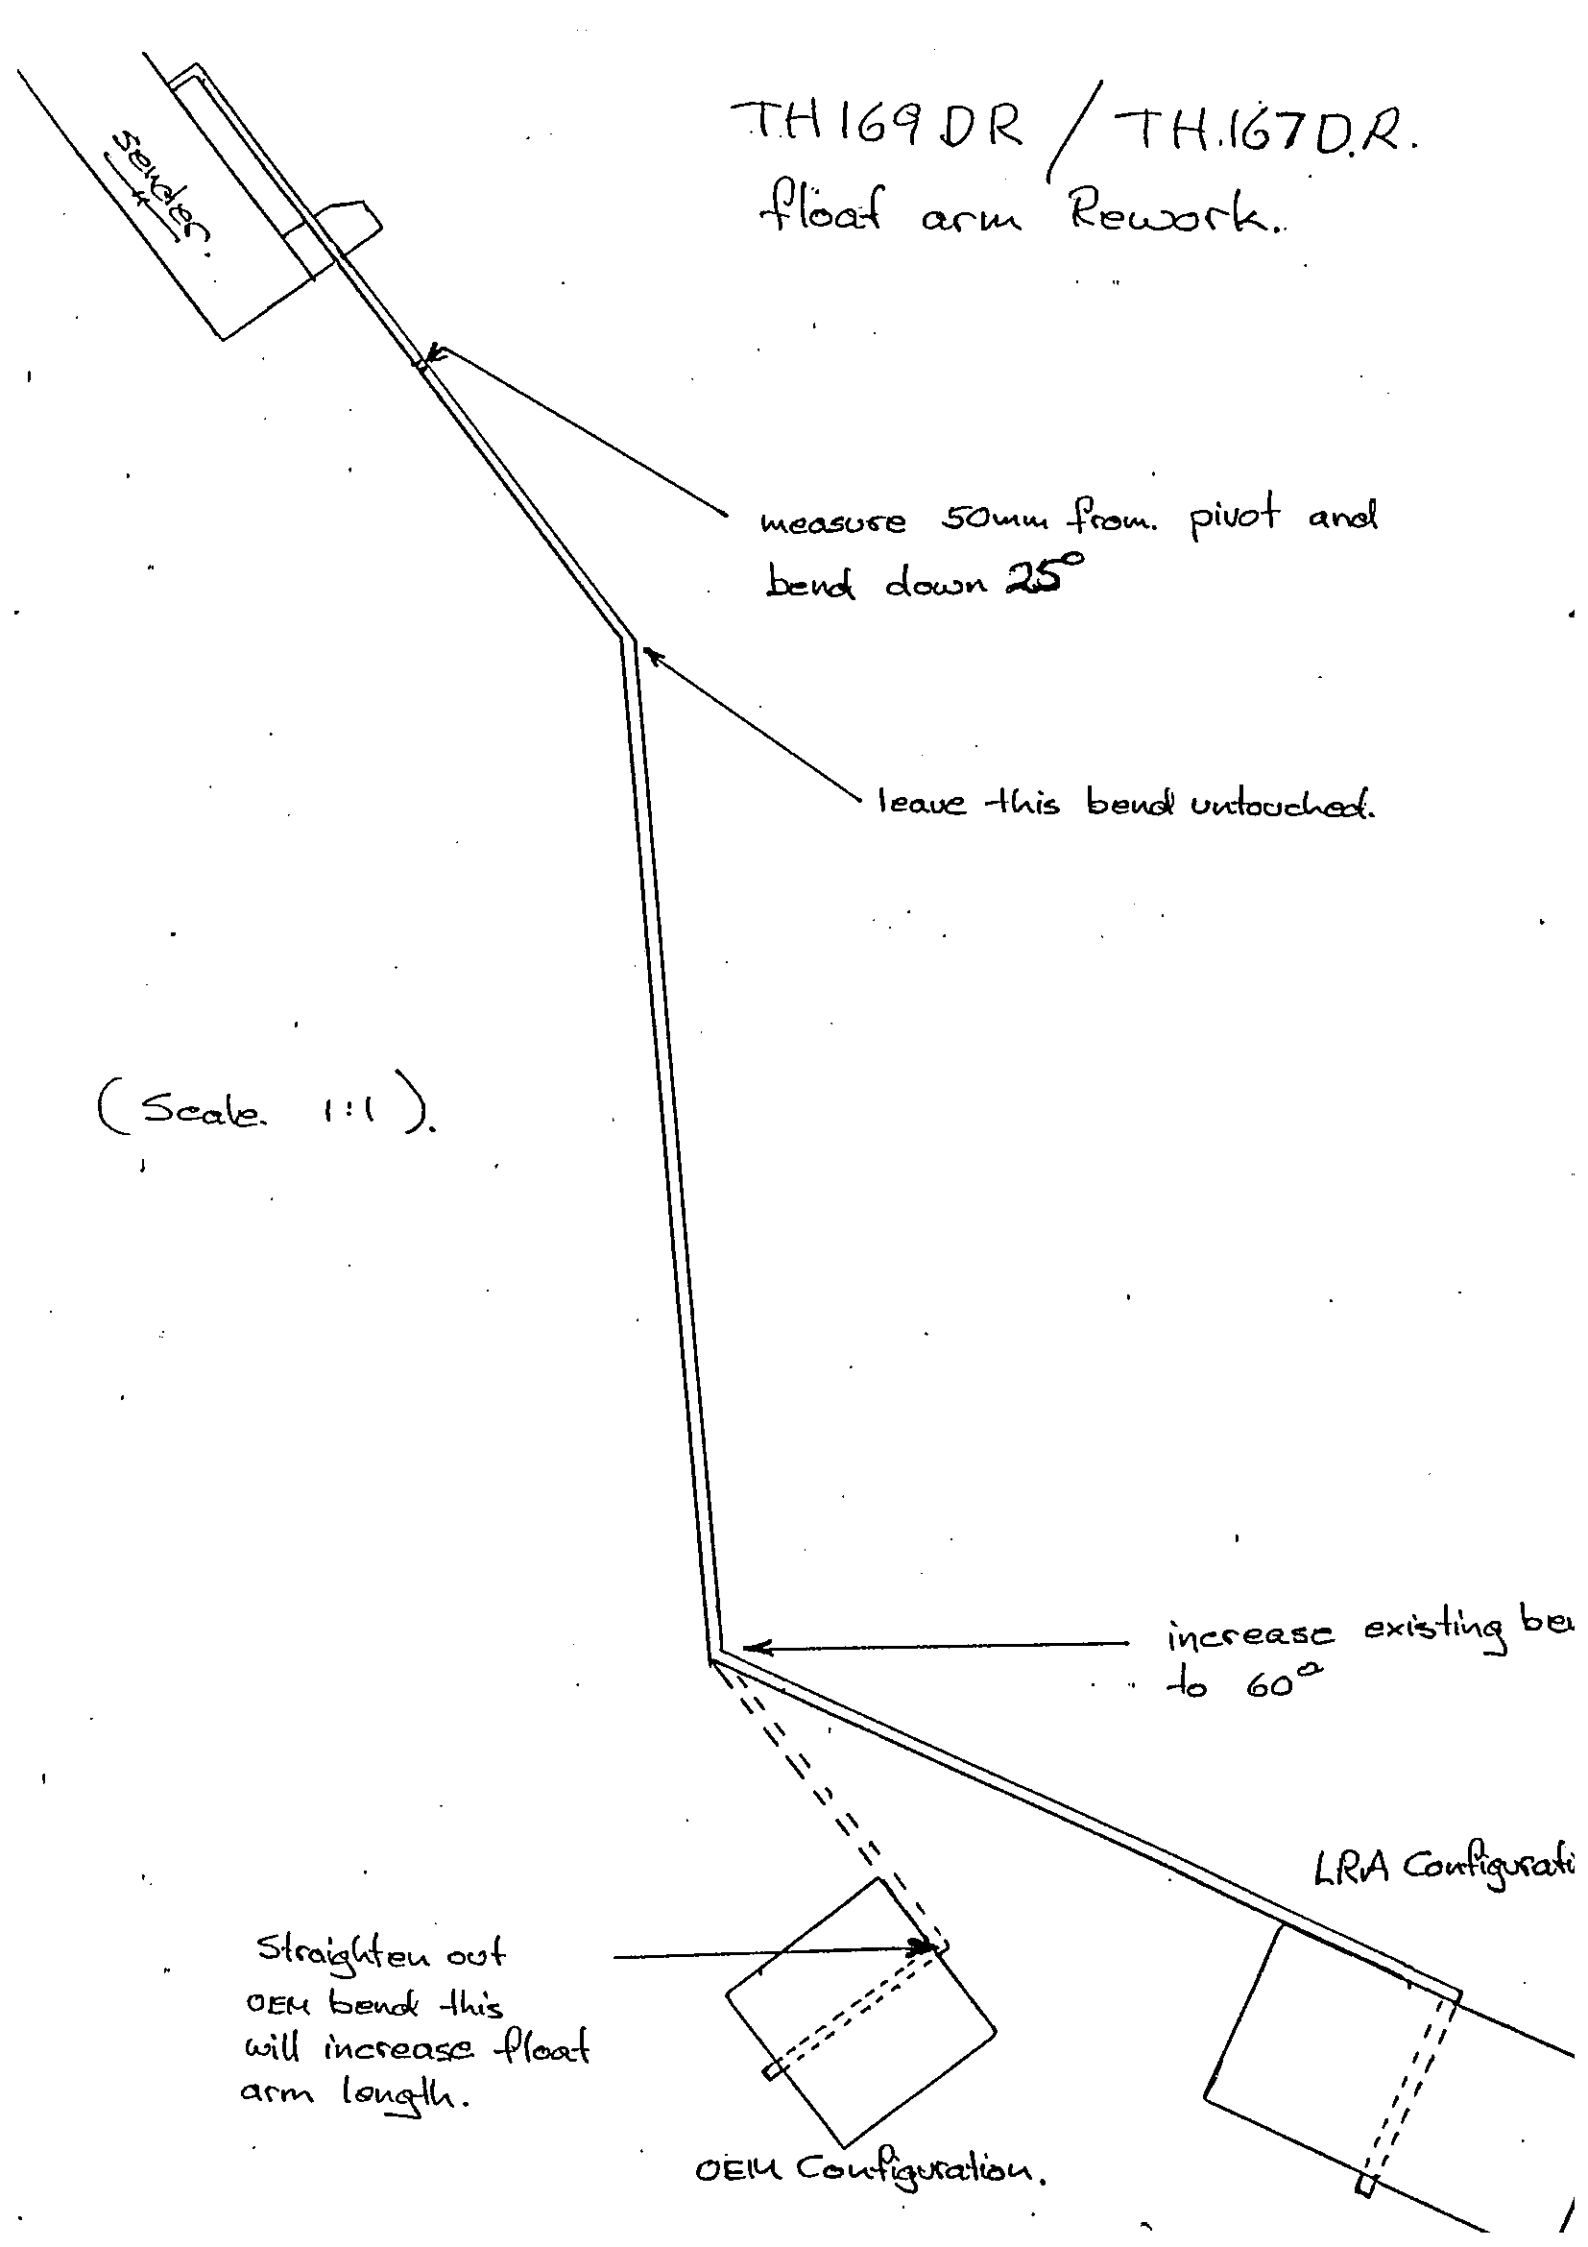 TH169DR / TH.167D.R.
float arm Rework.
Sender.
measure 50mm from. pivot and
bend down 25°
leave this bend untouched.
(Scale. 1:1).
increase existing
to 60°
LRA
Straighten out
OEM bend this
will increase float
arm length.
OEM Configuration.